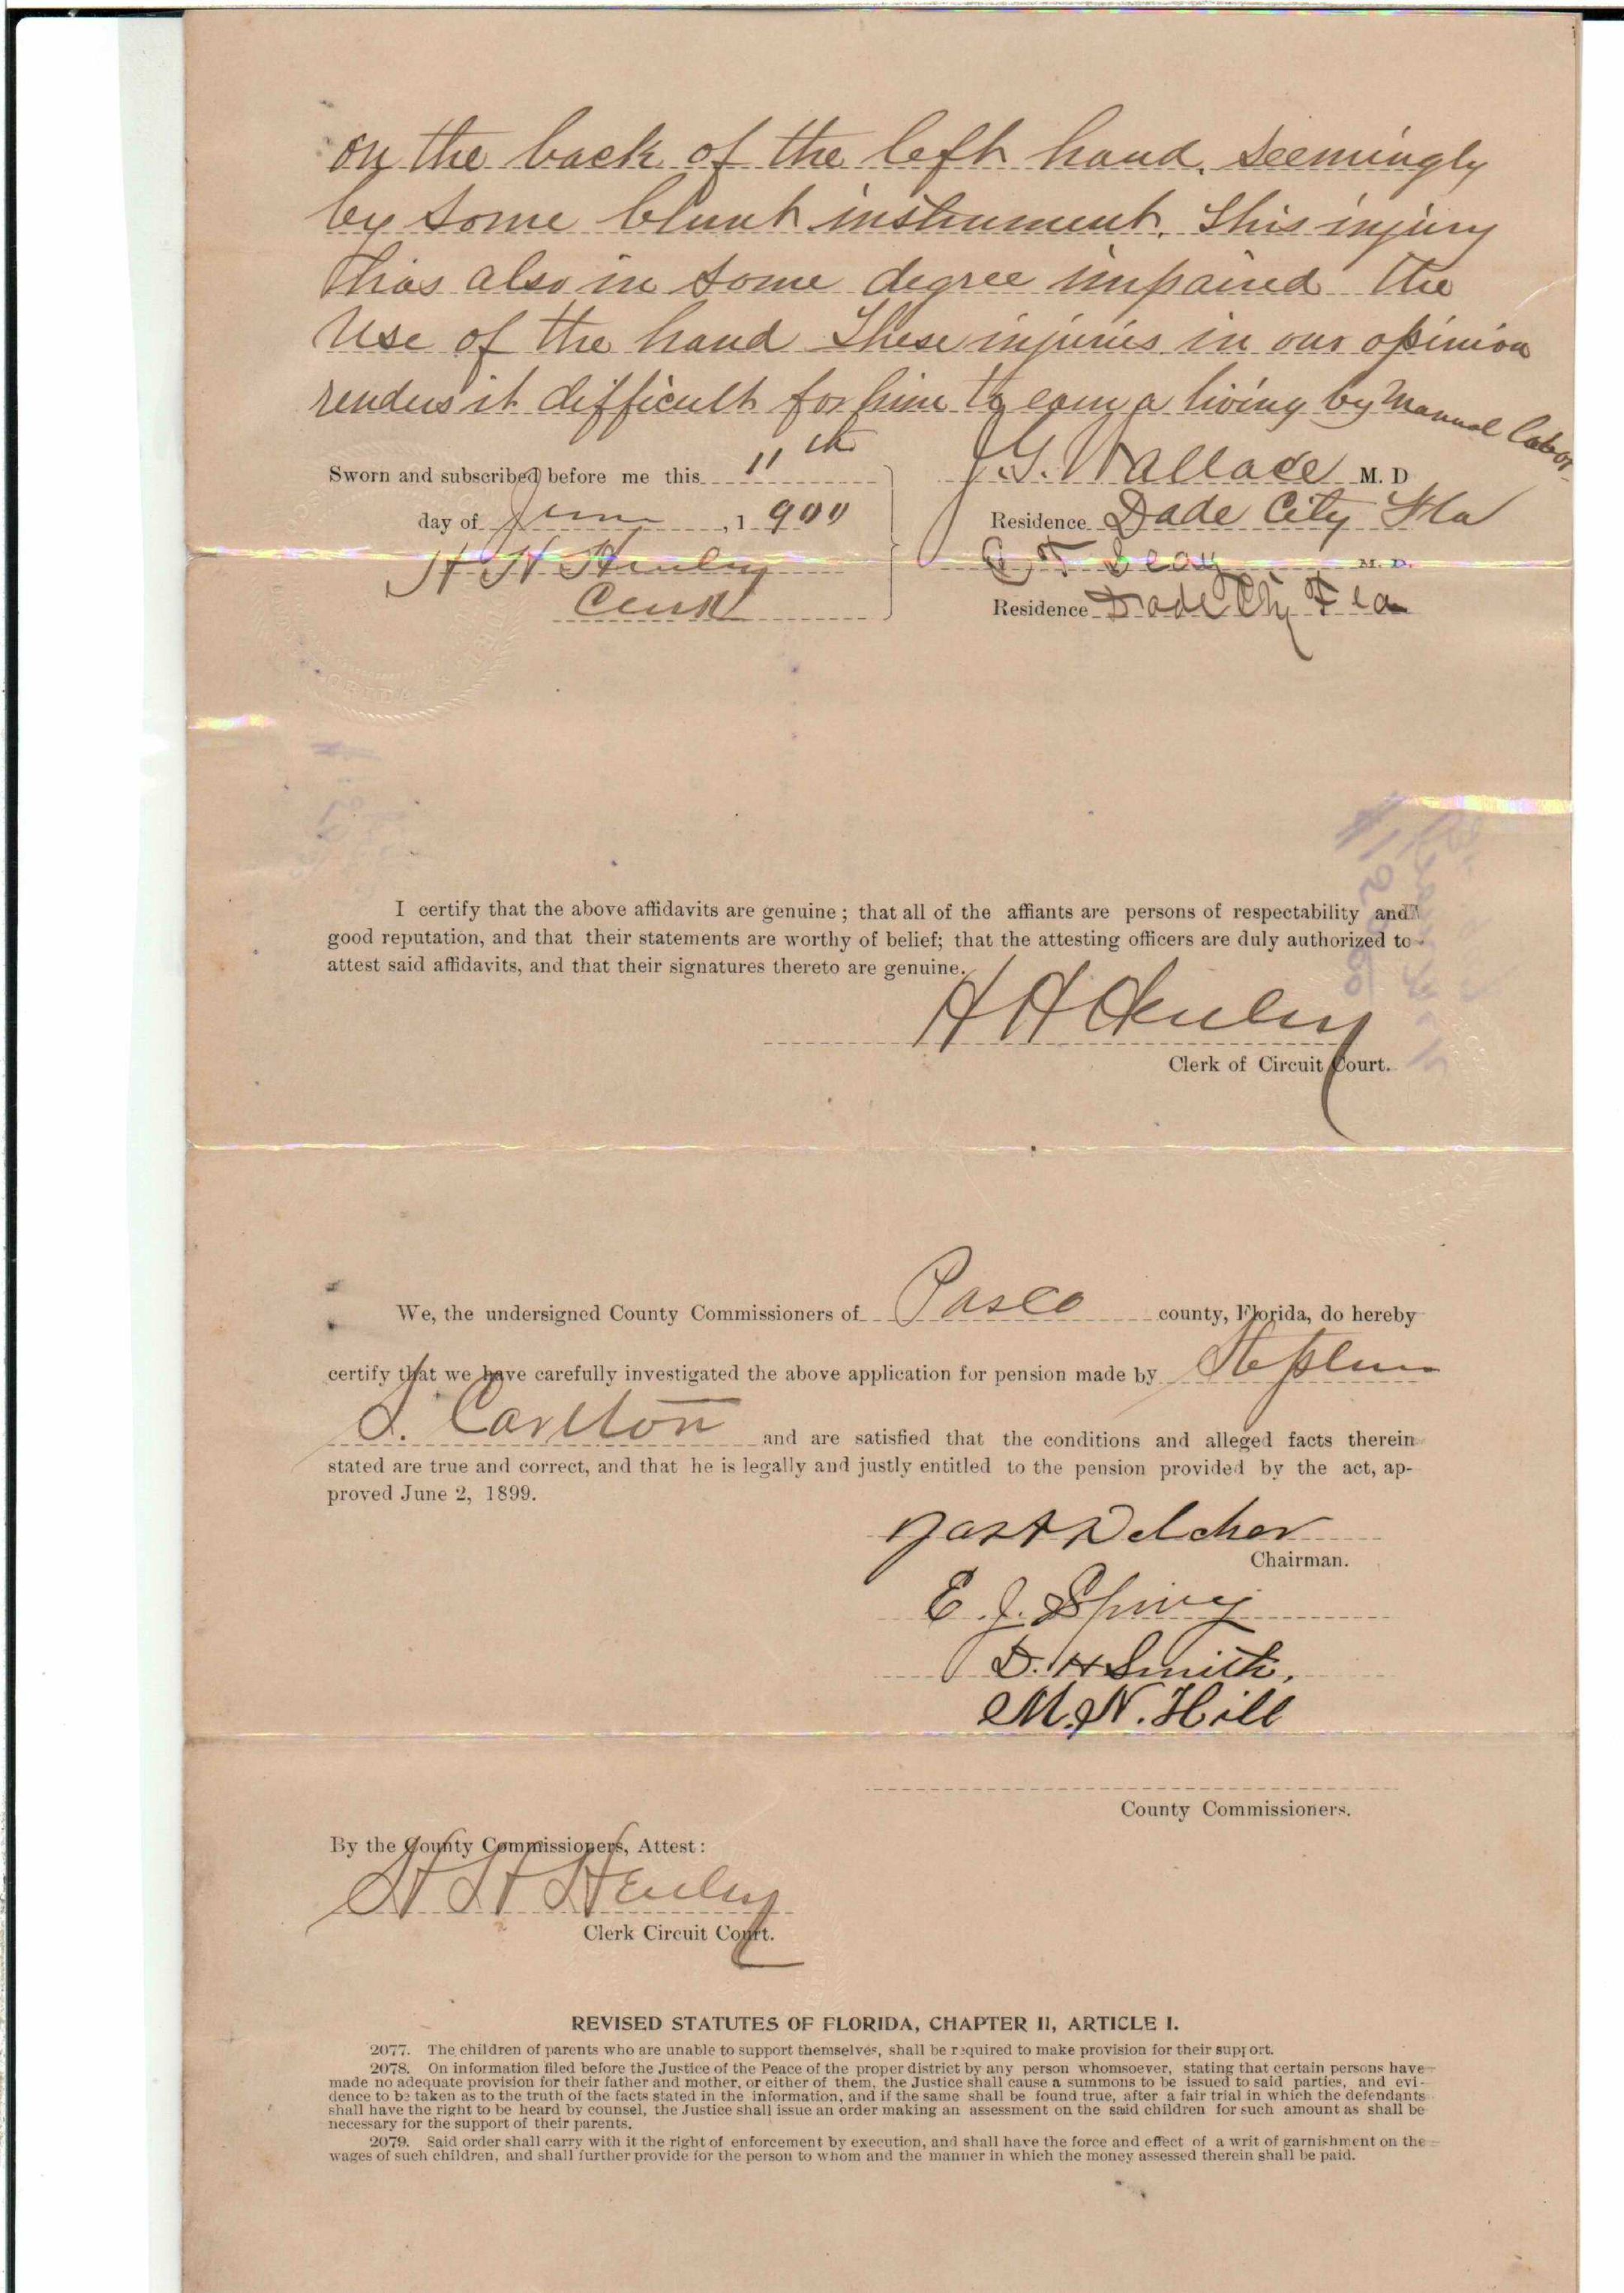 on the back of the left hand. Seemingly
by some blunt instrument. This injury
has also in some degree impaired the
use of the hand These injuries in our opinion
renders it difficult for him to earn a living by manual labor
Sworn and subscribed before me this 11th J. G. Wallace M. D
day of June, 1900 Residence Dade City Fla
H H Henley C T Seay M. D.
Clerk Residence Dade City Fla
I certify that the above affidavits are genuine; that all of the affiants are persons of respectability and
good reputation, and that their statements are worthy of belief; that the attesting officers are duly authorized to
attest said affidavits, and that their signatures thereto are genuine.
H H Henley
Clerk of Circuit Court.
We, the undersigned County Commissioners of Pasco county, Florida, do hereby
certify that we have carefully investigated the above application for pension made by Stephen
J. Carlton and are satisfied that the conditions and alleged facts therein
stated are true and correct, and that he is legally and justly entitled to the pension provided by the act, ap-
proved June 2, 1899.
Jas A Delcher
Chairman.
E. J. Spivey
D. H Smith,
M. N. Hill
County Commissioners.
By the County Commissioners, Attest:
H H Henley
Clerk Circuit Court.
REVISED STATUTES OF FLORIDA, CHAPTER II, ARTICLE I.
2077. The children of parents who are unable to support themselves, shall be required to make provision for their support.
2078. On information filed before the Justice of the Peace of the proper district by any person whomsoever, stating that certain persons have
made no adequate provision for their father and mother, or either of them, the Justice shall cause a summons to be issued to said parties, and evi-
dence to be taken as to the truth of the facts stated in the information, and if the same shall be found true, after a fair trial in which the defendants
shall have the right to be heard by counsel, the Justice shall issue an order making an assessment on the said children for such amount as shall be
necessary for the support of their parents.
2079. Said order shall carry with it the right of enforcement by execution, and shall have the force and effect of a writ of garnishment on the
wages of such children, and shall further provide for the person to whom and the manner in which the money assessed therein shall be paid.